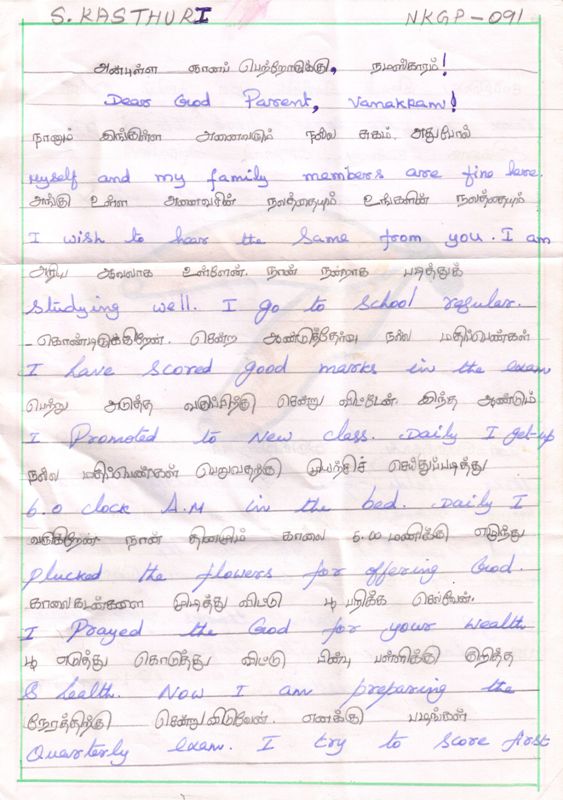 S. KASTHURI NKGP-091
அன்புள்ள ஞானப் பெற்றோருக்கு, நமஸ்காரம்!
Dear God Parent, Vanakkam!
நானும் இங்குள்ள அனைவரும் நல்ல சுகம். அதுபோல்
Myself and my family members are fine here.
அங்கு உள்ள அனைவரின் நலத்தையும் உங்களின் நலத்தையும்
I wish to hear the same from you. I am
அறிய ஆவலாக உள்ளேன். நான் நன்றாக படித்துக்
studying well. I go to school regular.
-கொண்டிருக்கிறேன். சென்ற ஆண்டுத்தேர்வு நல்ல மதிப்பெண்கள்
I have scored good marks in the exam
பெற்று அடுத்த வகுப்பிற்கு சென்று விட்டேன். இந்த ஆண்டும்
I Promoted to New class. Daily I get-up
நல்ல மதிப்பெண்கள் பெறுவதற்கு முயற்சிச் செய்துப்படித்து
6.0 clock A.M in the bed. Daily I
வருகிறேன். நான் தினமும் காலை 6.00 மணிக்கு எழுந்து
plucked the flowers for offering God.
காலைகடன்களை முடித்து விட்டு பூ பறிக்க செல்வேன்.
I Prayed the God for your wealth
பூ எடுத்து கொடுத்து விட்டு பின்பு பள்ளிக்கு குறித்த
& health. Now I am preparing the
நேரத்திற்கு சென்றுவிடுவேன். எனக்கு
Quarterly exam. I try to score first